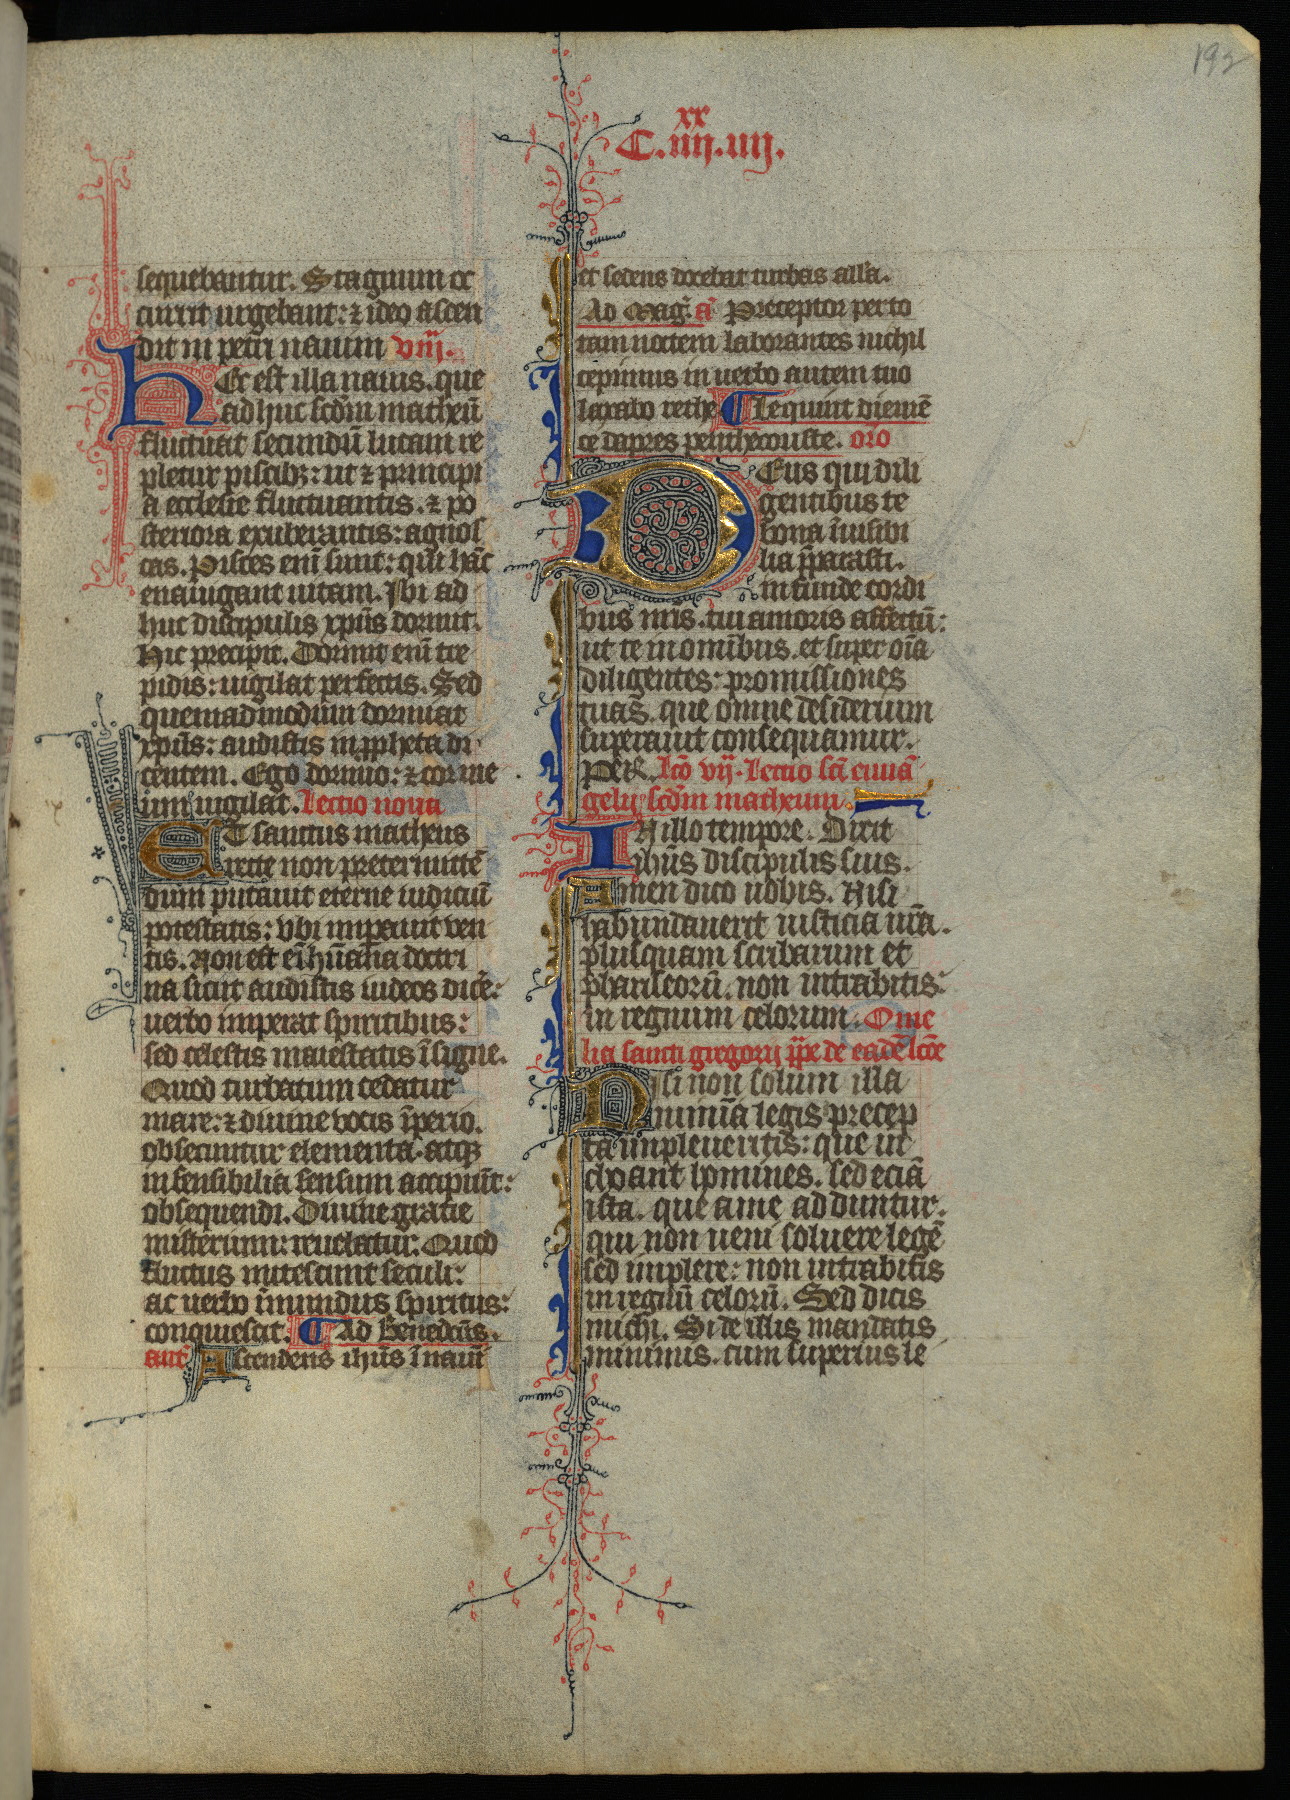 192
xx
C.iiij.iiij.
sequebantur. Stagnum oc
currit urgebant: ⁊ ideo ascen
dit in petri nauim viij.
hEc est illa nauis. que
ad huc scdm matheu᷑
fluctuat secundu᷑ lucam re
pletur piscibꝫ: ut ⁊ principi
a ecclesie fluctuantis. ⁊ po
steriora exuberantis: agnos
cas. Pisces eni᷑ sunt: qui hanc
enauigant uitam. Ibi ad
huc discipulis xp̄us dormit.
Hic precipit. Dormit eni᷑ tre
pidis: uigilat perfectis. Sed
quemadmodum dormiat
xp̄us: audistis in ꝓpheta di
centem. Ego dormio: ⁊ cor me
um uigilat. Lectio nona
ET sanctus matheus
recte non pretermitte᷑
dum putauit eterne iudiciu᷑
potestatis: vbi imperauit ven
tis. Non est ei᷑ hūana doctri
na sicut audistis iudeos dice᷑:
uerbo imperat spiritibus:
sed celestis maiestatis īsigne.
Quod turbatum cedatur
mare: ⁊ diuine uocis īperio.
obsecuntur elementa. atqꝫ
insensibilia sensum accipiūt:
obsequendi. Diuine gratie
misterium: reuelatur. Quod
fluctus mitescunt seculi:
ac uerbo īmundus spiritus:
conquiescit. ¶ Ad Benedcūs.
ant᷑ Ascendens ihūs ī naui᷑
et sedens docebat turbas all'a.
Ad Mag᷑. a᷑ Preceptor per to
tam noctem laborantes nichil
cepimus in uerbo autem tuo
laxabo rethe ¶ Lequint diemē
ce dapres penthecouste. oro
DEus qui dili
gentibus te
bona īuisibi
lia p̄parasti.
infunde cordi
bus nr̄is. tui amoris affectū:
ut te in omībus. et super oīa
diligentes: promissiones
tuas. que omne desiderium
superant consequamur.
Per. Lcō vij. Lectio scī euuā
gelij scdm matheum.
IN illo tempore. Dixit
ihūs discipulis suis.
Amen dico uobis. Nisi
habundauerit iusticia uīa.
plusquam scribarum et
phariseorū. non intrabitis:
in regnum celorum. Ome
lia sancti gregorij ppē de eadē lcōe
Nisi non solum illa
minima legis precep
ta impleueritis: que in
choant homines. sed eciā
ista. que a me adduntur.
qui non ueni soluere legē
sed implere: non intrabitis
in regnū celorū. Sed dicis
michi. Si de illis mandatis
minimis. cum superius le